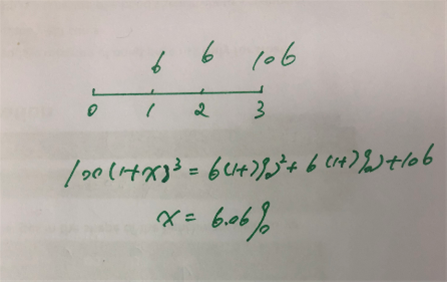 6 6 106
0 1 2 3
100(1+x)³ = 6(1+7%)² + 6(1+7%) + 106
x = 6.06%